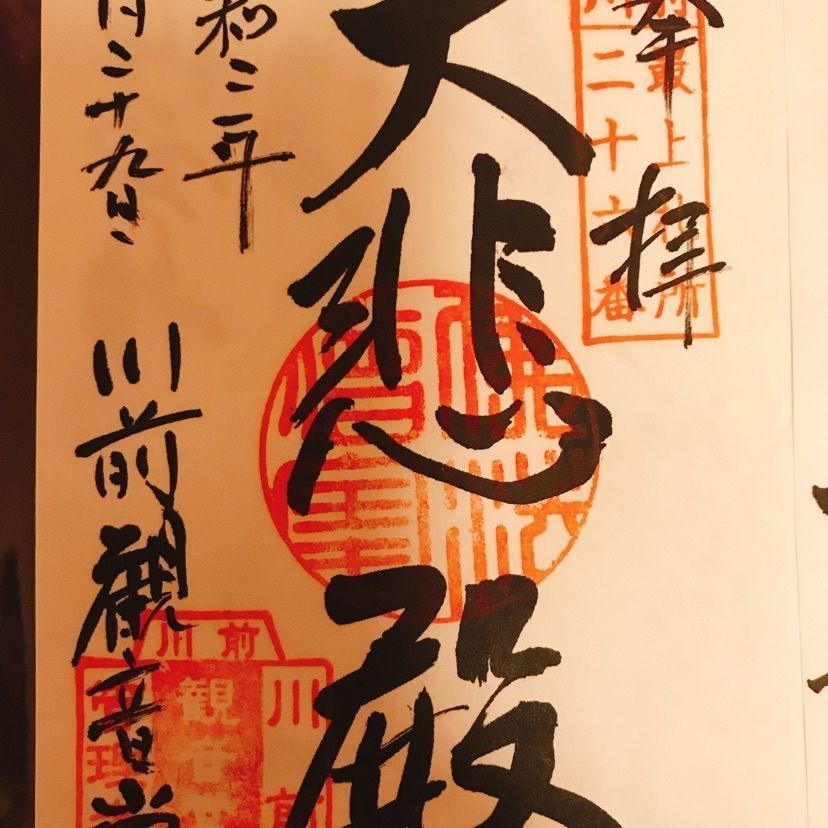 奉拝
最上
二十六番
大悲殿
和二年
月二十九日
川前観音堂
川前
川前
観音